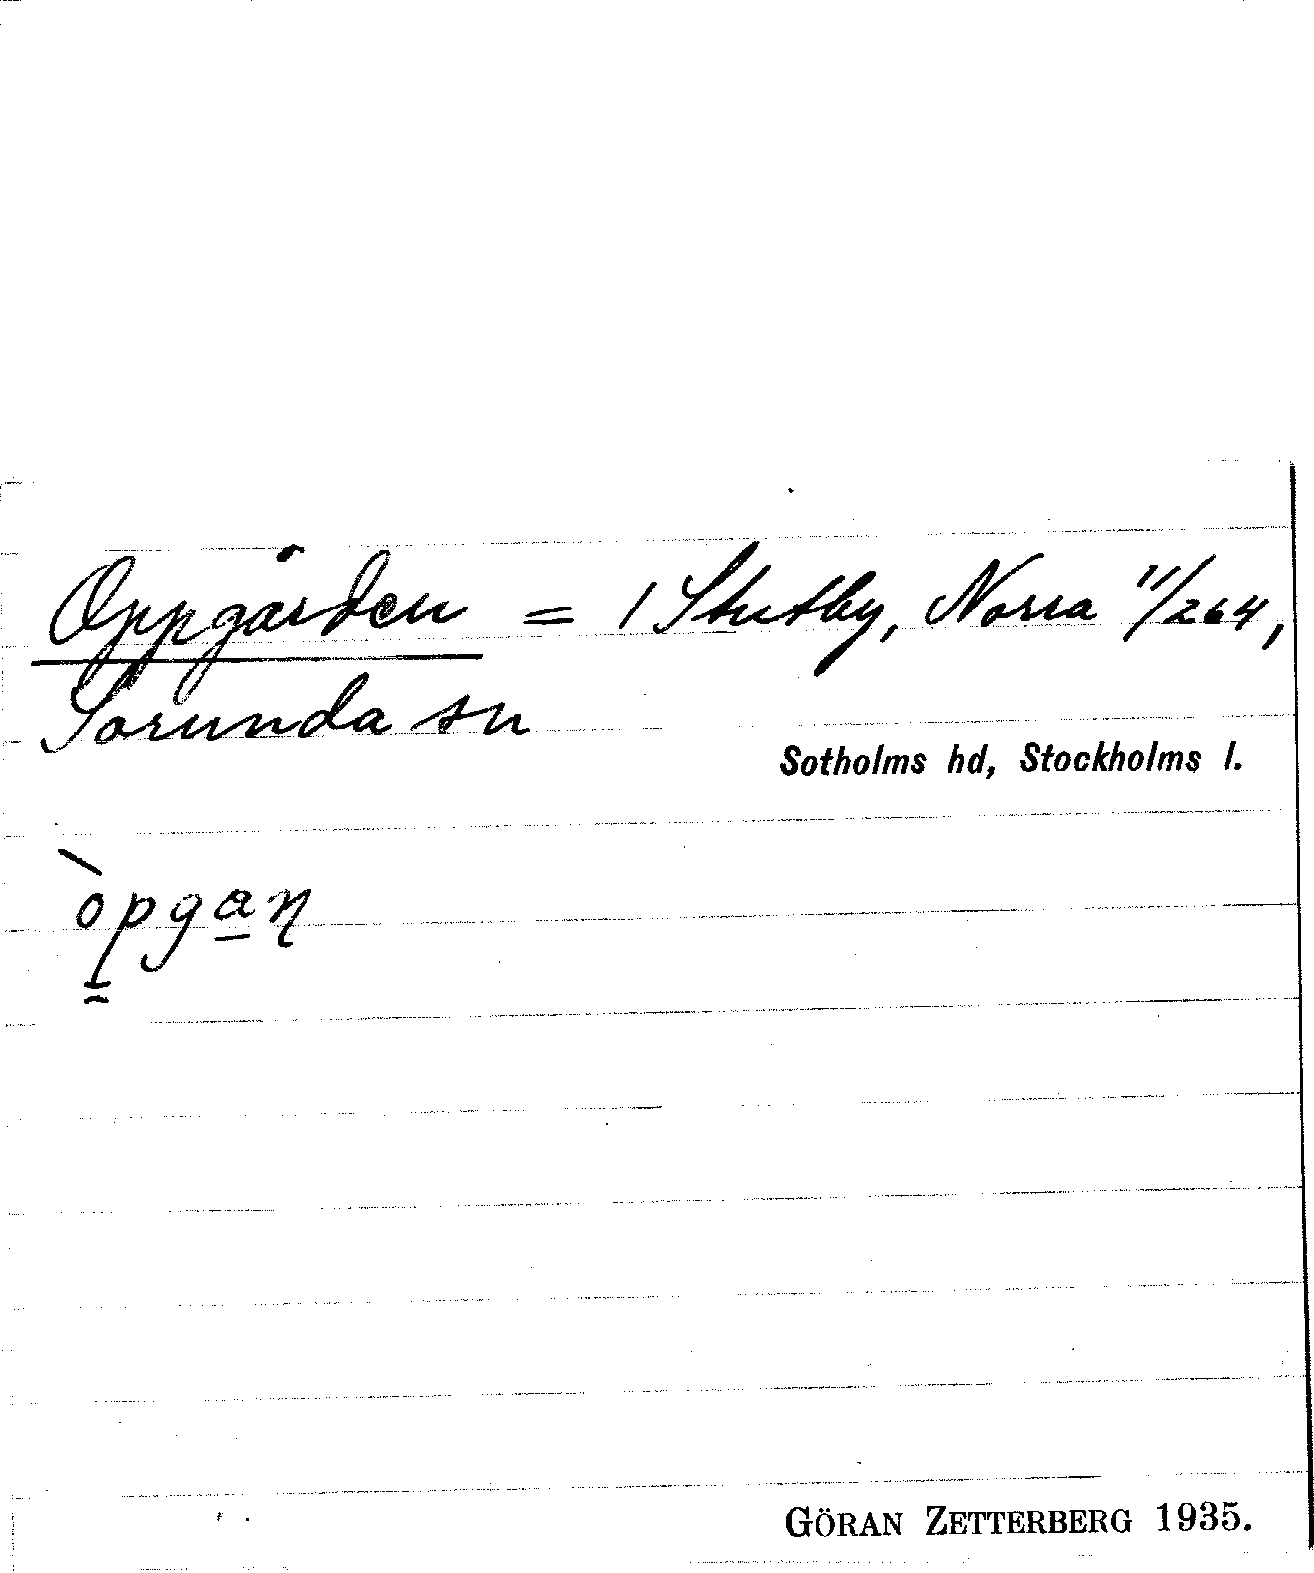 Oppgården = 1 Stutby, Norra 11/264,
Sorunda sn
Sotholms hd, Stockholms l.
òpgan
GÖRAN ZETTERBERG 1935.